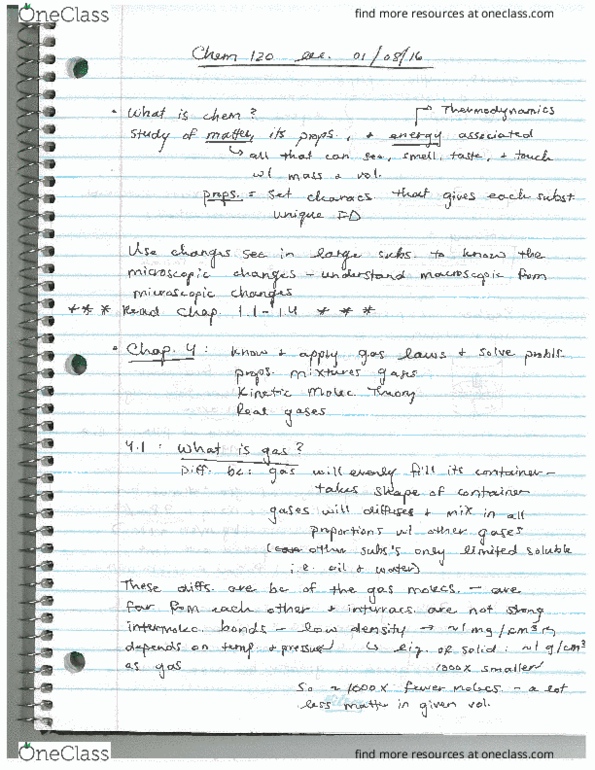 OneClass
find more resources at oneclass.com
Chem 120 lec. 01/08/16
Thermodynamics
• What is chem?
Study of matter, its props., + energy associated
↳ all that can see, smell, taste, + touch
w/ mass + vol.
props. = set characs. that gives each subst
unique ID
Use changes see in large subs. to know the
microscopic changes - understand macroscopic from
microscopic changes
* * * Read Chap. 1.1-1.4 * * *
• Chap. 4: know + apply gas laws + solve probls.
props. mixtures gases
Kinetic Molec. Theory
Real gases
4.1: What is gas?
Diff. bc: gas will evenly fill its container -
takes shape of container
gases will diffuses + mix in all
proportions w/ other gases
other subs's only limited soluble
i.e. oil + water)
These diffs. are bc of the gas molecs. - are
far from each other + interracs. are not strong
intermolec. bonds - low density → ~1 mg/cm³
depends on temp + pressure ↳ liq. or solid: ~1 g/cm³
as gas 1000x smaller
So ≈ 1000x fewer molecs - a lot
less matter in given vol.
OneClass
find more resources at oneclass.com